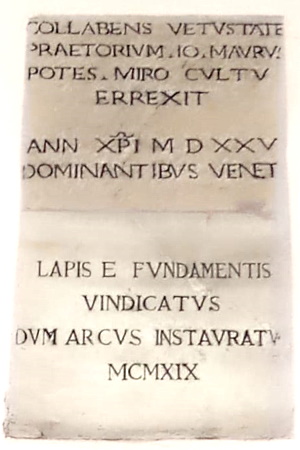 COLLABENS VETVSTATE
PRAETORIVM. IO. MAVRVS
POTES. MIRO CVLTV
ERREXIT
ANN XP̄I M D XXV
DOMINANTIBVS VENET
LAPIS E FVNDAMENTIS
VINDICATVS
DVM ARCVS INSTAVRATV
MCMXIX